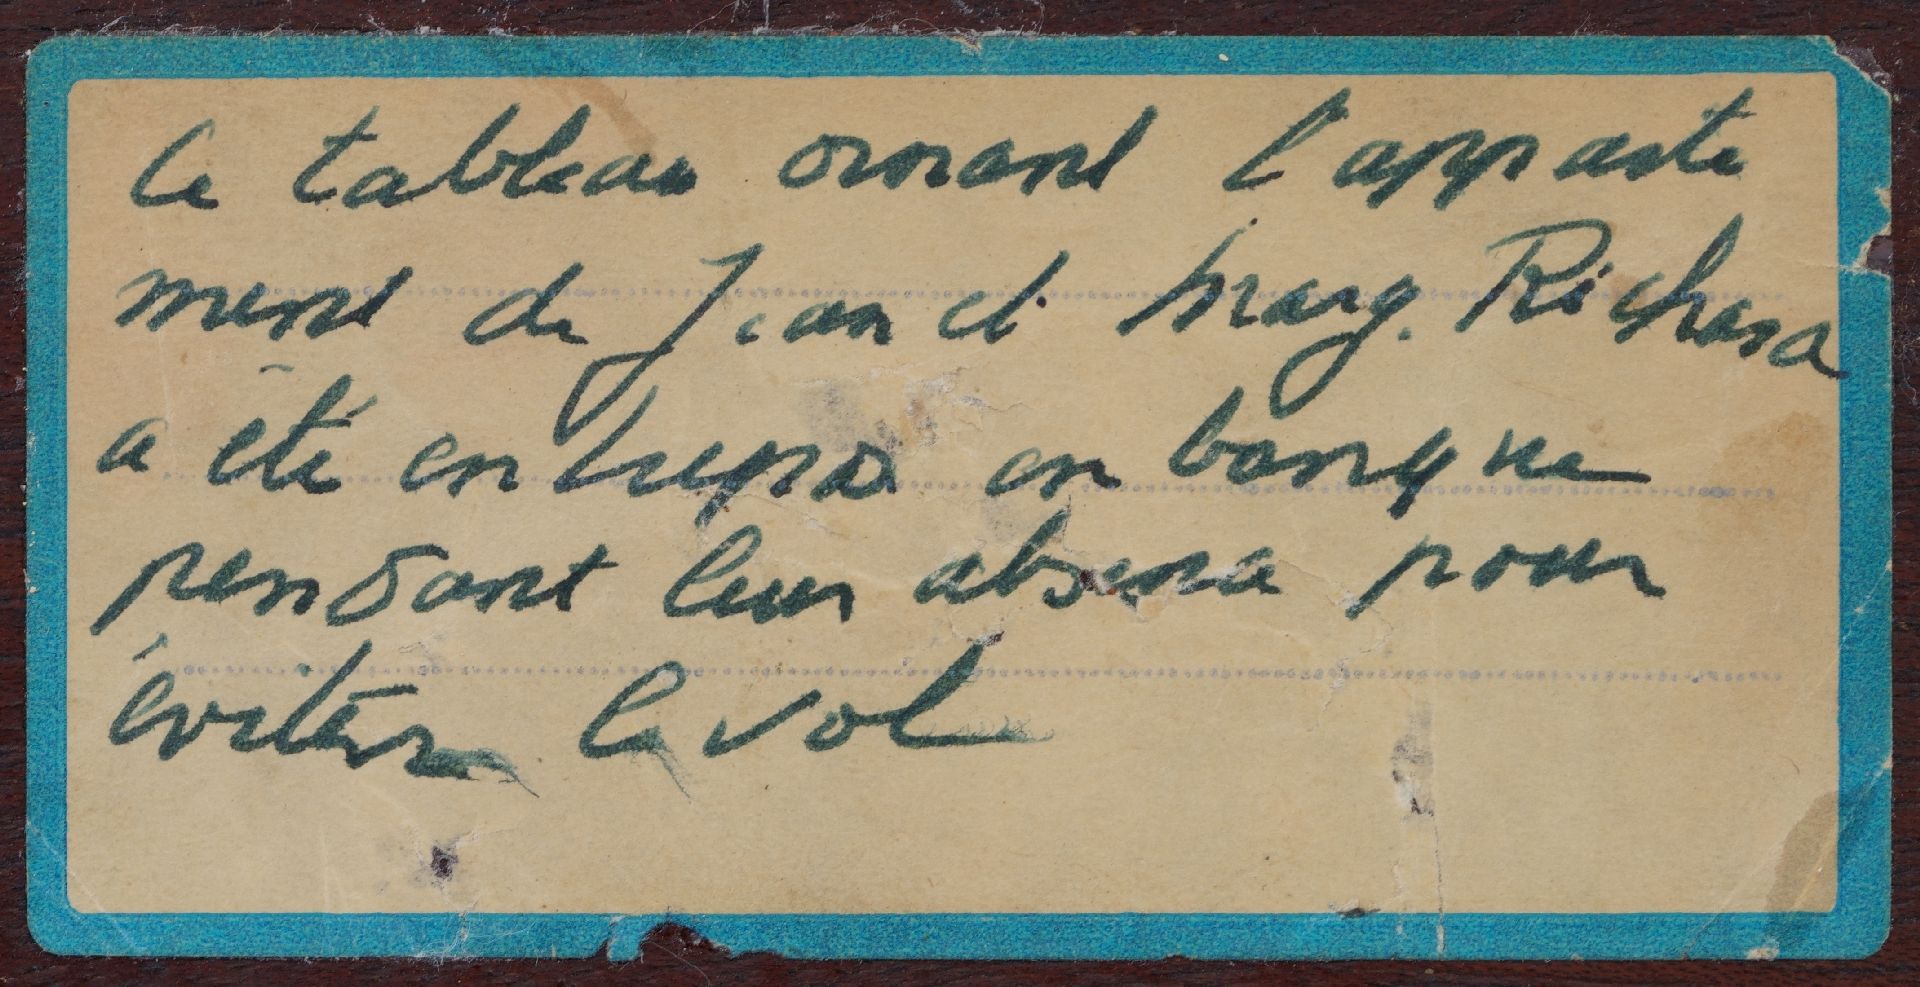 Le tableau ornant l'apparte
ment de Jean et Marg. Richard
a été entreposé en banque
pendant leur absence pour
éviter le vol